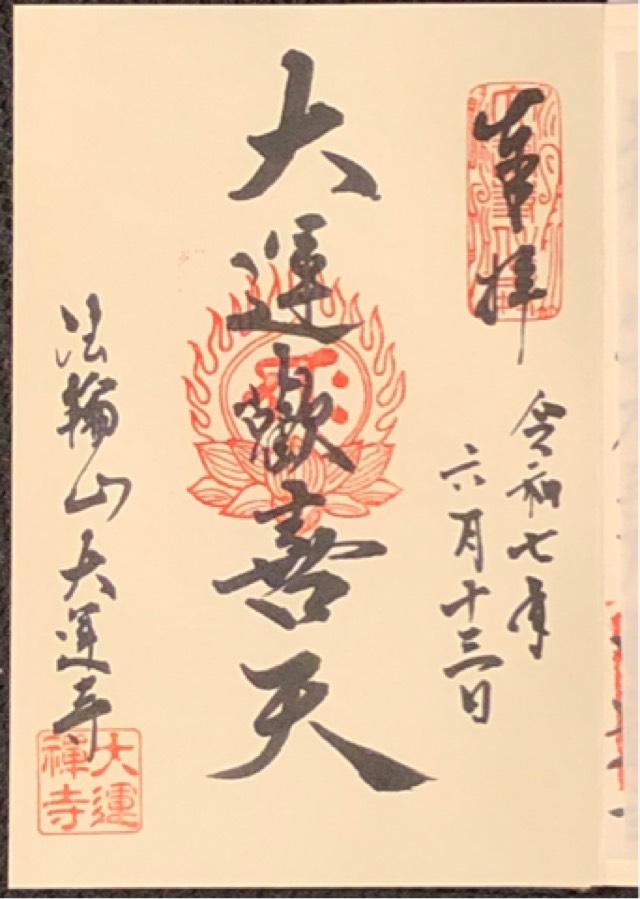 奉拝
令和七年
六月十三日
大運歓喜天
法輪山大運寺
大運
禅寺